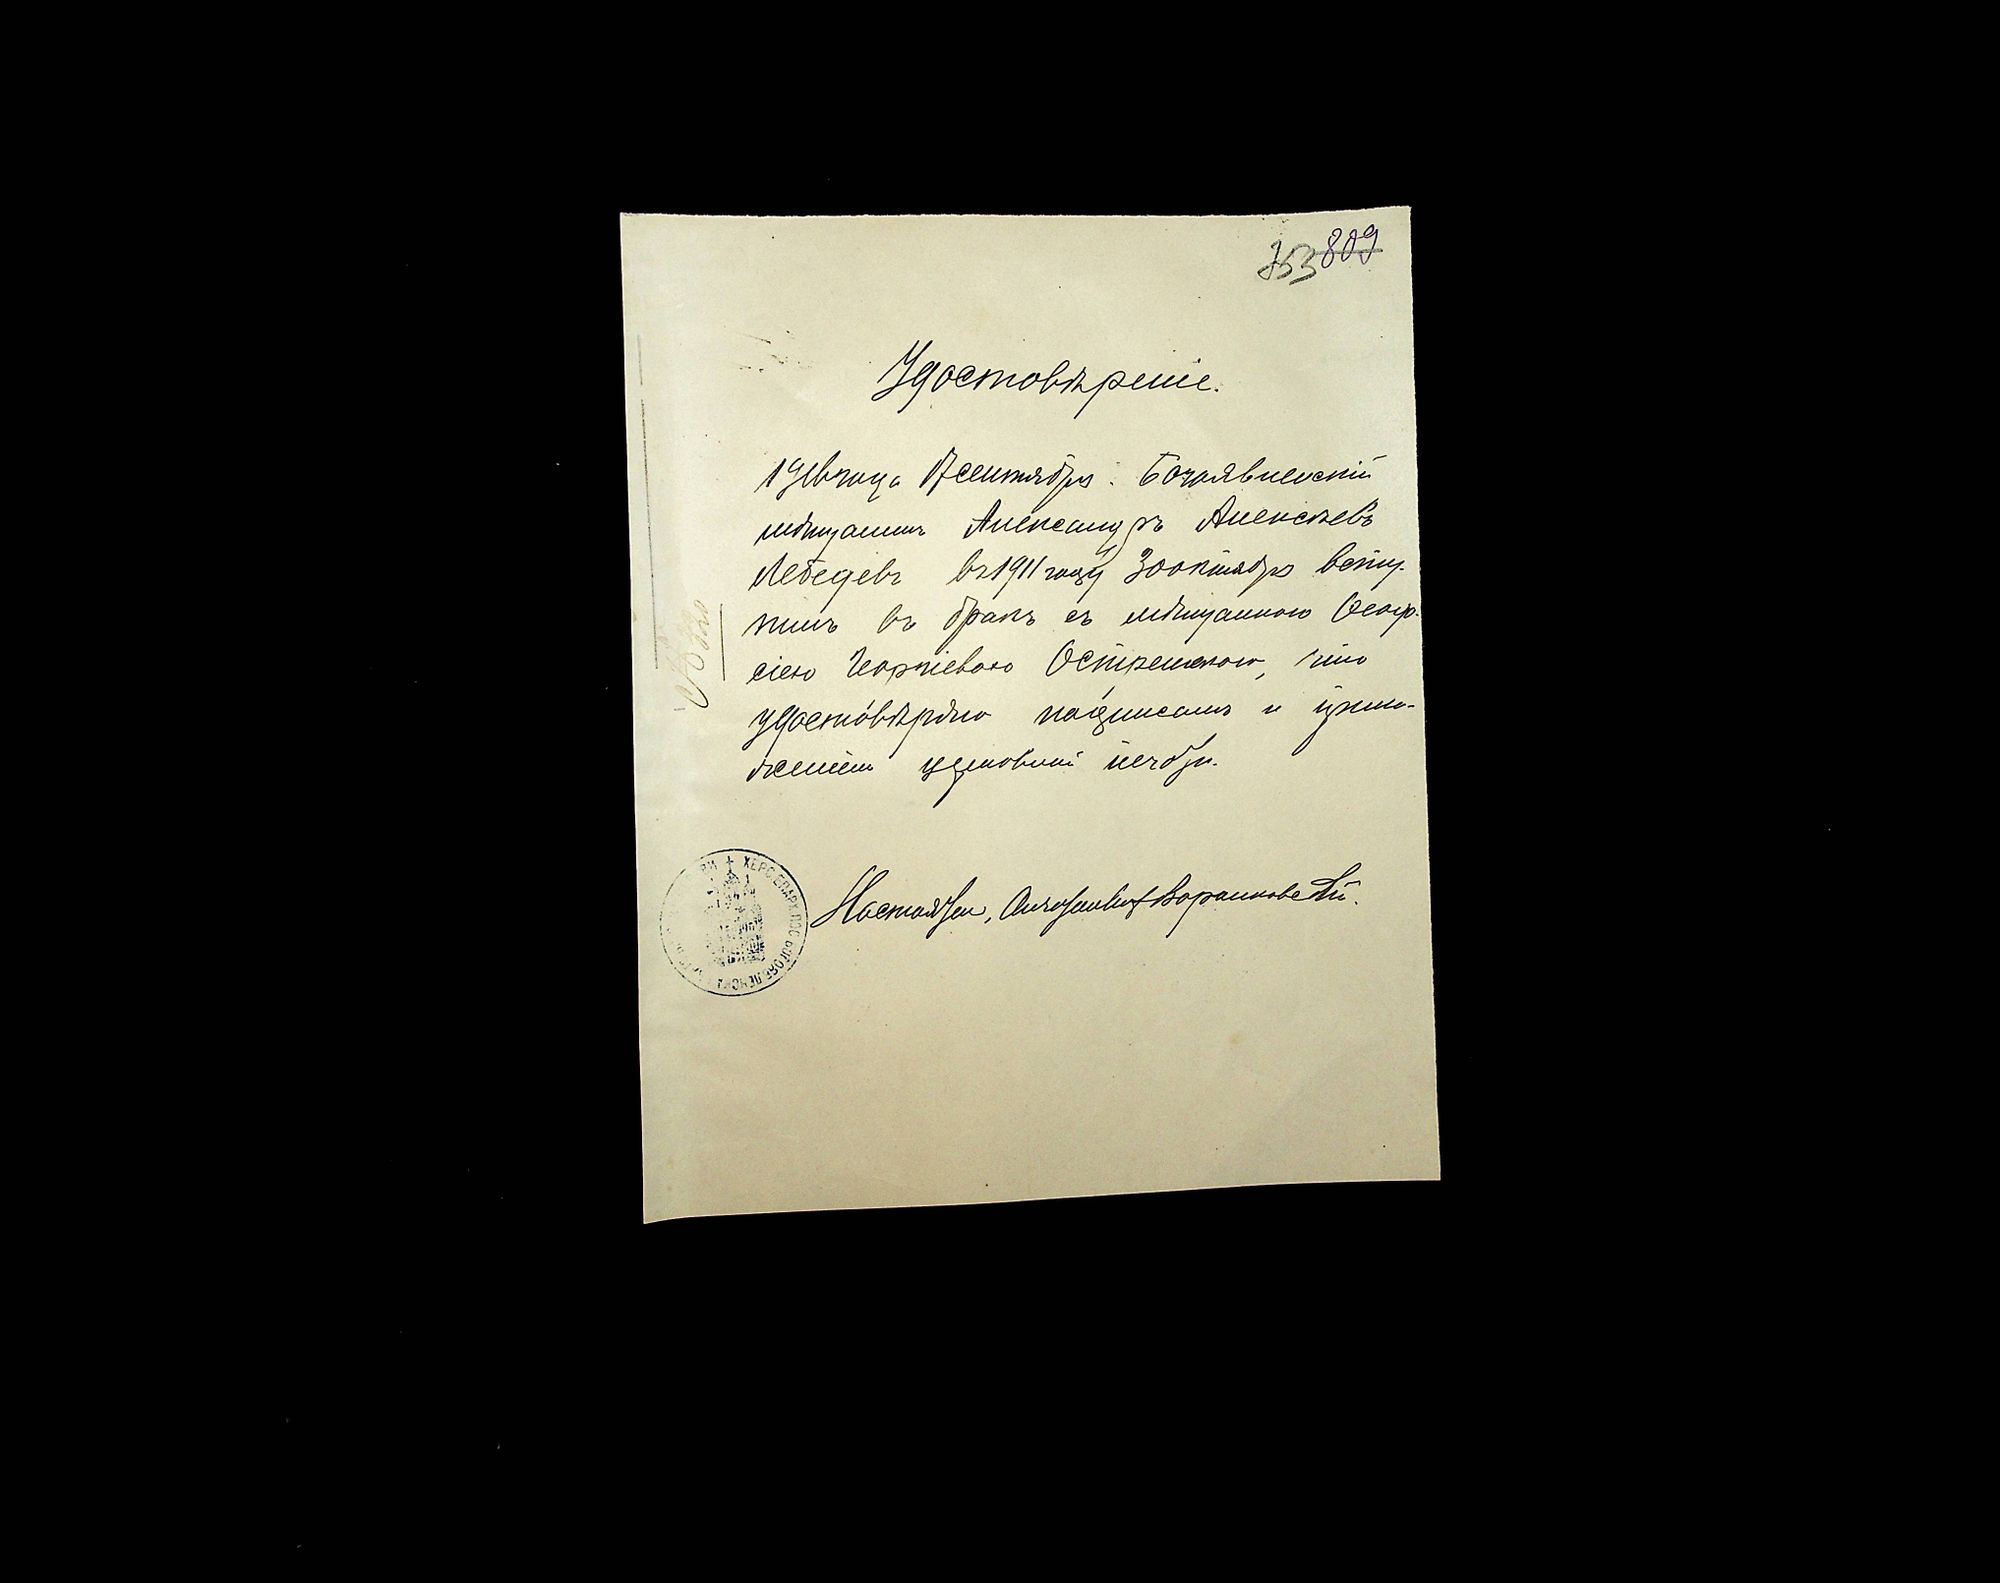 753 809
Удостовѣреніе.
года 17 сентября. Богоявленскій
мѣщанинъ Александръ Алексѣевъ
Лебедевъ въ 1911 году 30 октября всту-
пилъ въ бракъ съ мѣщанкою
сіею Георгіевою что
удостовѣряю подписомъ и прило-
женіемъ церковной печати.
Настоятель,
ХЕРС. ЕПАРХ. ПОС. БОГОЯВЛЕНСКА